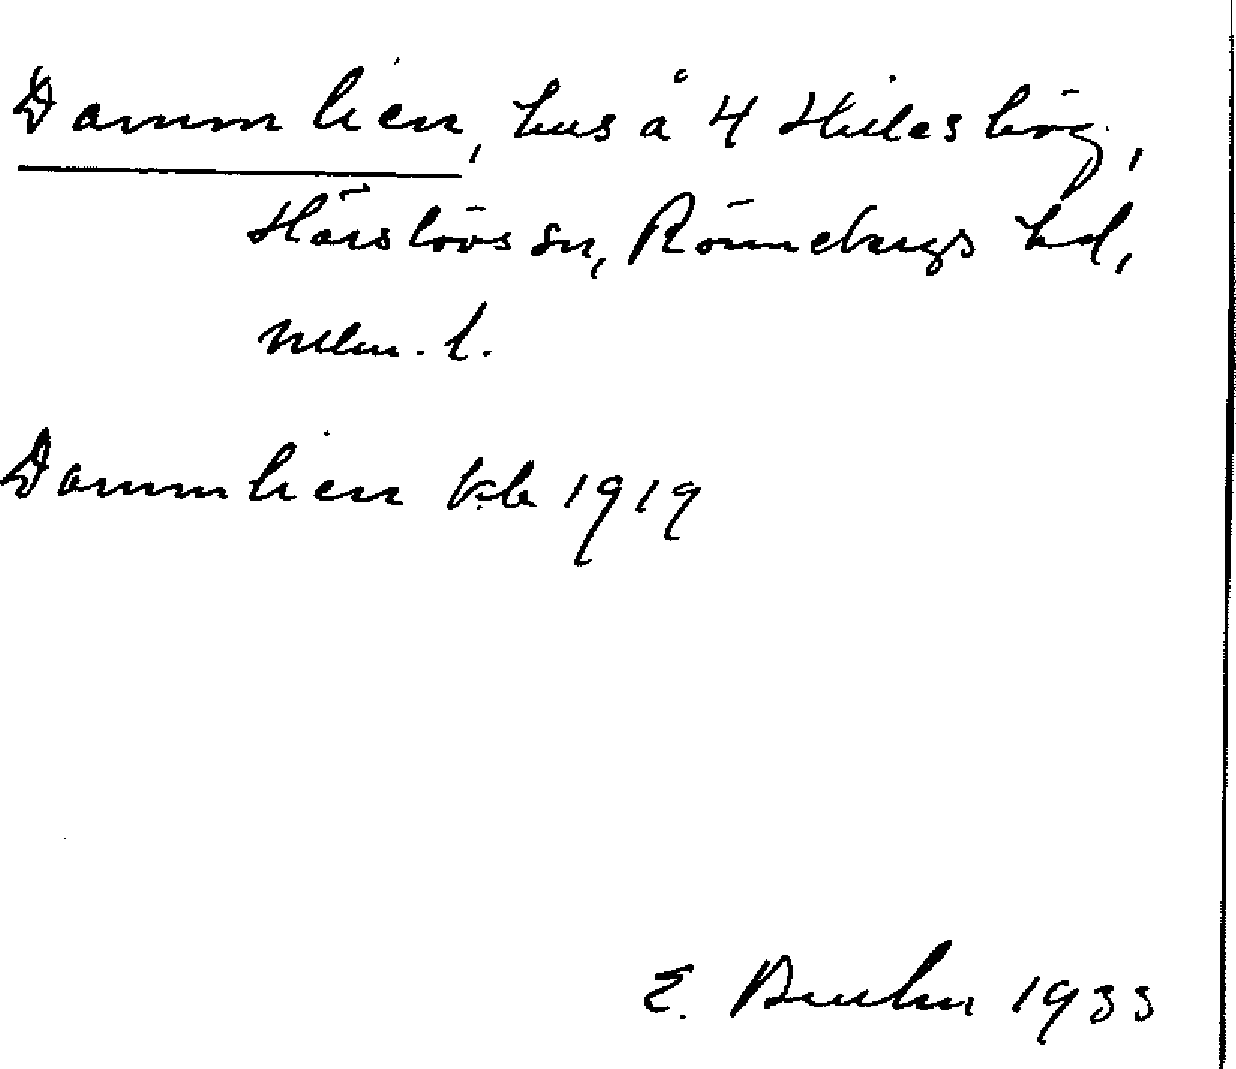 Dammlien, hus å 4 Hilleshög,
Härslövs sn, Rönnebergs hd,
Malm. l.
Dammlien kb 1919
E. 1933